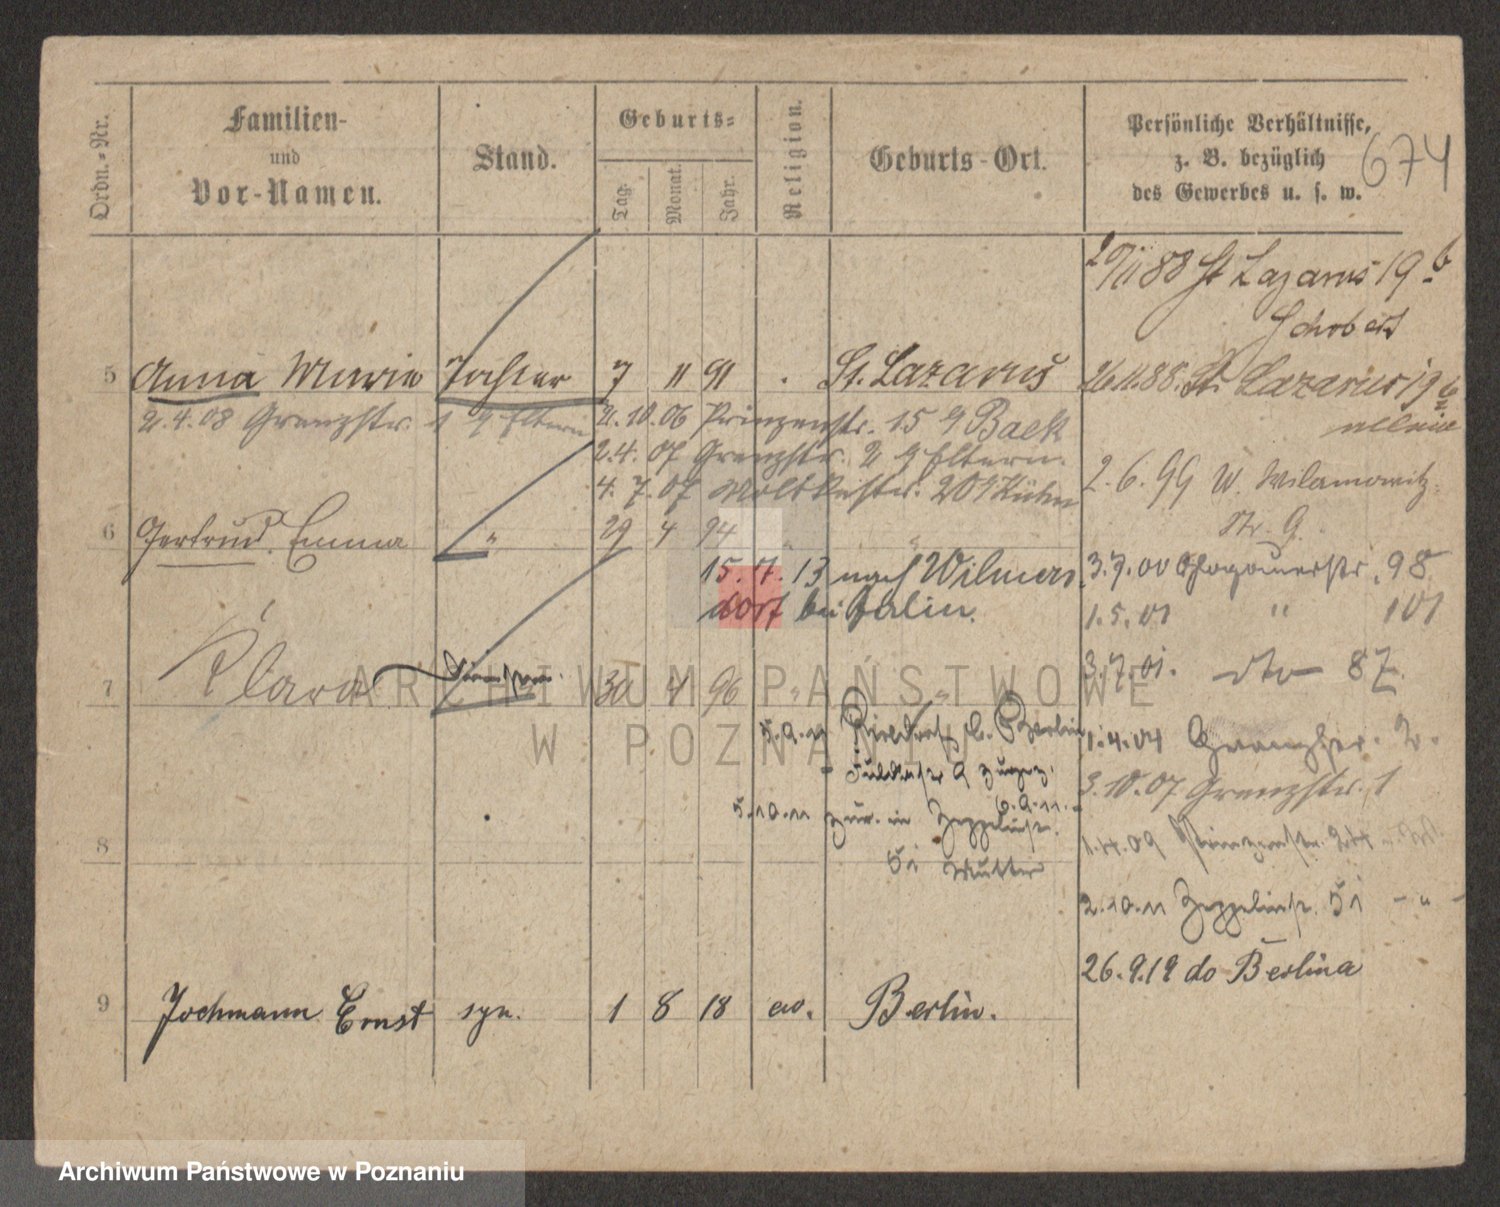 Ordn.-Nr.
Familien-
und
Vor-Namen.
Stand.
Geburts-
Tag.
Monat.
Jahr.
Religion.
Geburts-Ort.
Persönliche Verhältnisse,
z. B. bezüglich
des Gewerbes u. s. w.
674
88 St Lazarus 19 b
Schobert
5 Anna Marie Tochter 7 11 91 St. Lazarus
26.11.88. St. Lazarus 19 b
2.4.08 Grenzstr. 1 Eltern 2.10.06 Prinzenstr. 15 Baek
2.4.07 Grenzstr. 2 Eltern.
4.7.07 Moltkestr. 20 Kühn
2.6.99 W. Wilamowitz
Str. 9.
6 Gertrud. Emma " 29 4 94
15.7.13 nach Wilmers
dorf bei Berlin.
3.7.00 Glogauerstr. 98
1.5.01 " 101
3.7.01. dto 87.
7 Klara 30 4 96 " "
5.9.11 Berlin
6.9.11.
1.4.04 Grenzstr. 2.
3.10.07 Grenzstr. 1
5.10.11 zur. in Zeppelinstr.
51 Mutter
8
1.4.09 Prinzenstr.
2.10.11 Zeppelinstr. 51 - " -
26.9.19 do Berlina
9 Jochmann Ernst syn. 1 8 18 ew. Berlin.
ARCHIWUM PAŃSTWOWE
W POZNANIU
Archiwum Państwowe w Poznaniu